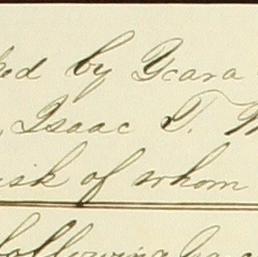 ked by Icara
Isaac T. W
isk of whom
following